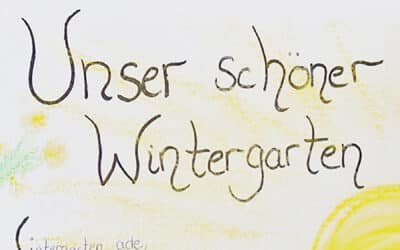 Unser schöner
Wintergarten
ade,